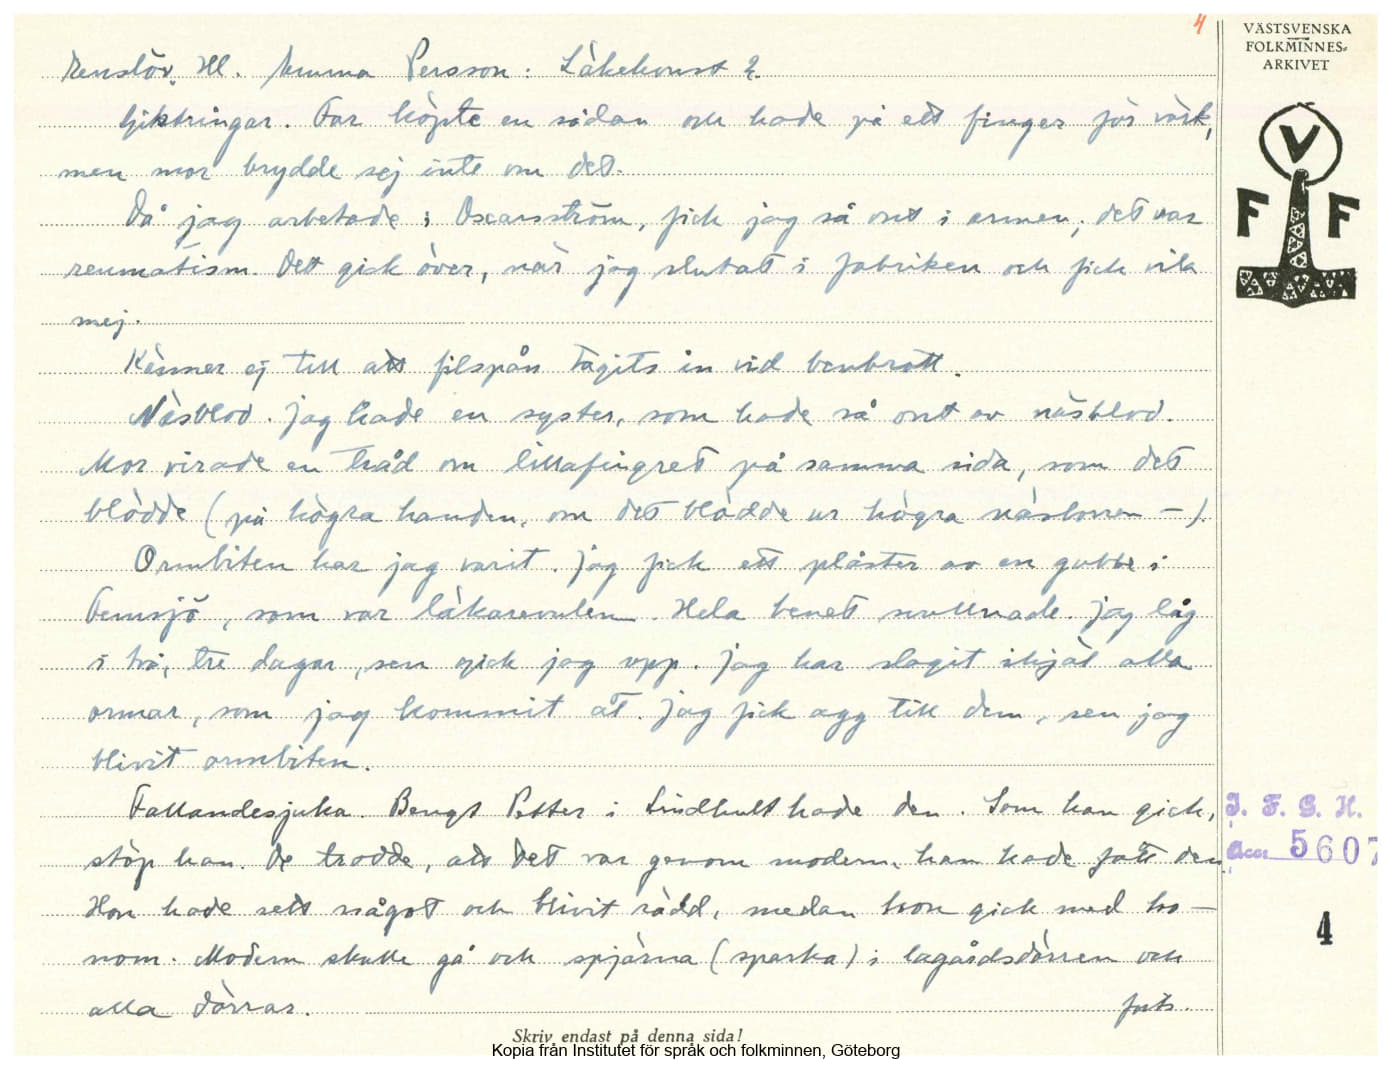 4
VÄSTSVENSKA
FOLKMINNES-
ARKIVET
Renslöv. Hl. Emma Persson: Läkekonst 2.
Gjktringar. Far köpte en sådan och hade på ett finger för värk,
men mor brydde sej inte om det.
Då jag arbetade i Oscarsström, fick jag så ont i armen, det var
reumatism. Det gick över, när jag slutat i fabriken och fick vila
mej.
Känner ej till att filspån tagits in vid benbrott.
Näsblod. Jag hade en syster, som hade så ont av näsblod.
Mor virade en tråd om lillafingret på samma sida, som det
blödde (på högra handen, om det blödde ur högra näsboren –).
Ormbiten har jag varit. Jag fick ett plåster av en gubbe i
Femsjö, som var läkarevulen. Hela benet svullnade. Jag låg
i två, tre dagar, sen gick jag upp. Jag har slagit ihjäl alla
ormar, som jag kommit åt. Jag fick agg till dem, sen jag
blivit ormbiten.
Fallandesjuka. Bengt Petter i Lindhult hade den. Som han gick,
stöp han. De trodde, att det var genom modern, han hade fått den
Hon hade sett något och blivit rädd, medan hon gick med ho-
nom. Modern skulle gå och spjärna (sparka) i lagårdsdörren och
alla dörrar.
forts.
V
F F
I. F. G. H.
Acc. 5607
4
Skriv endast på denna sida!
Kopia från Institutet för språk och folkminnen, Göteborg